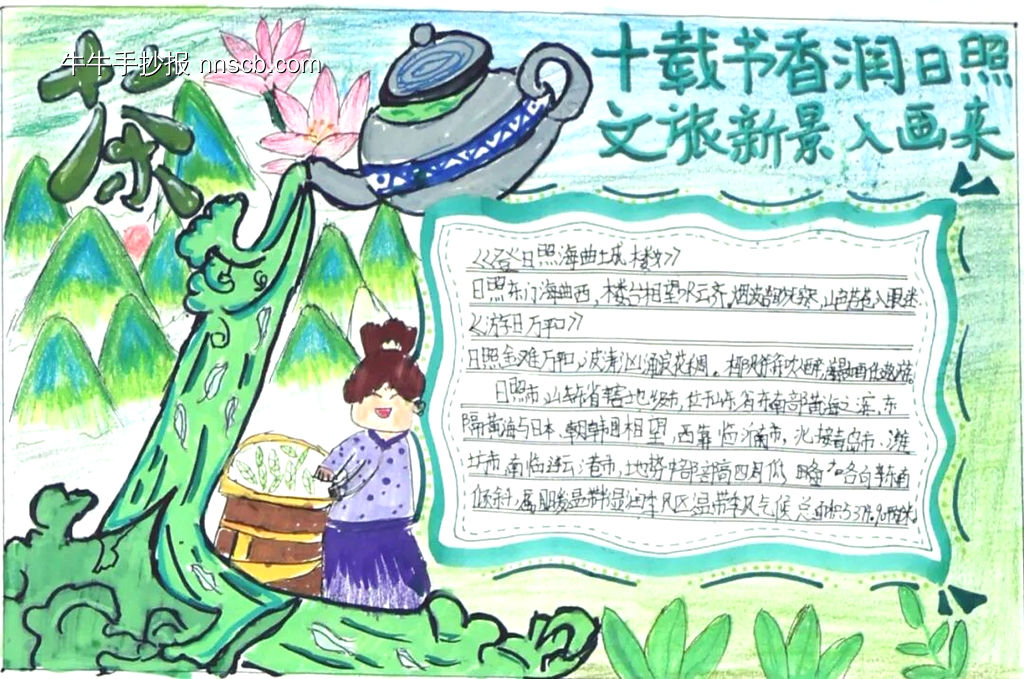 牛牛手抄报 nnscb.com
茶
十载书香润日照
文旅新景入画来
《登日照海曲城楼》
日照东门海曲西，楼台相望水云齐，山色苍苍入
《游日万平口》
日照金滩万平口，波涛汹涌浪花稠。
日照市，山东省辖地级市，位于山东省东南部黄海之滨，东
隔黄海与日本、朝韩国相望，西靠临沂南市，北接青岛市、潍
坊市，南临连云港市，地势中部高四周低，略向东南
倾斜，属暖温带湿润季风区温带季风气候，总面积5371.9